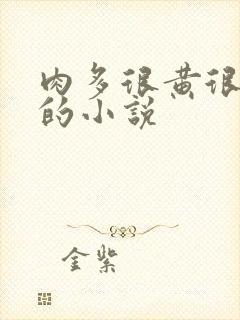 肉多很黄很
的小说
金紫